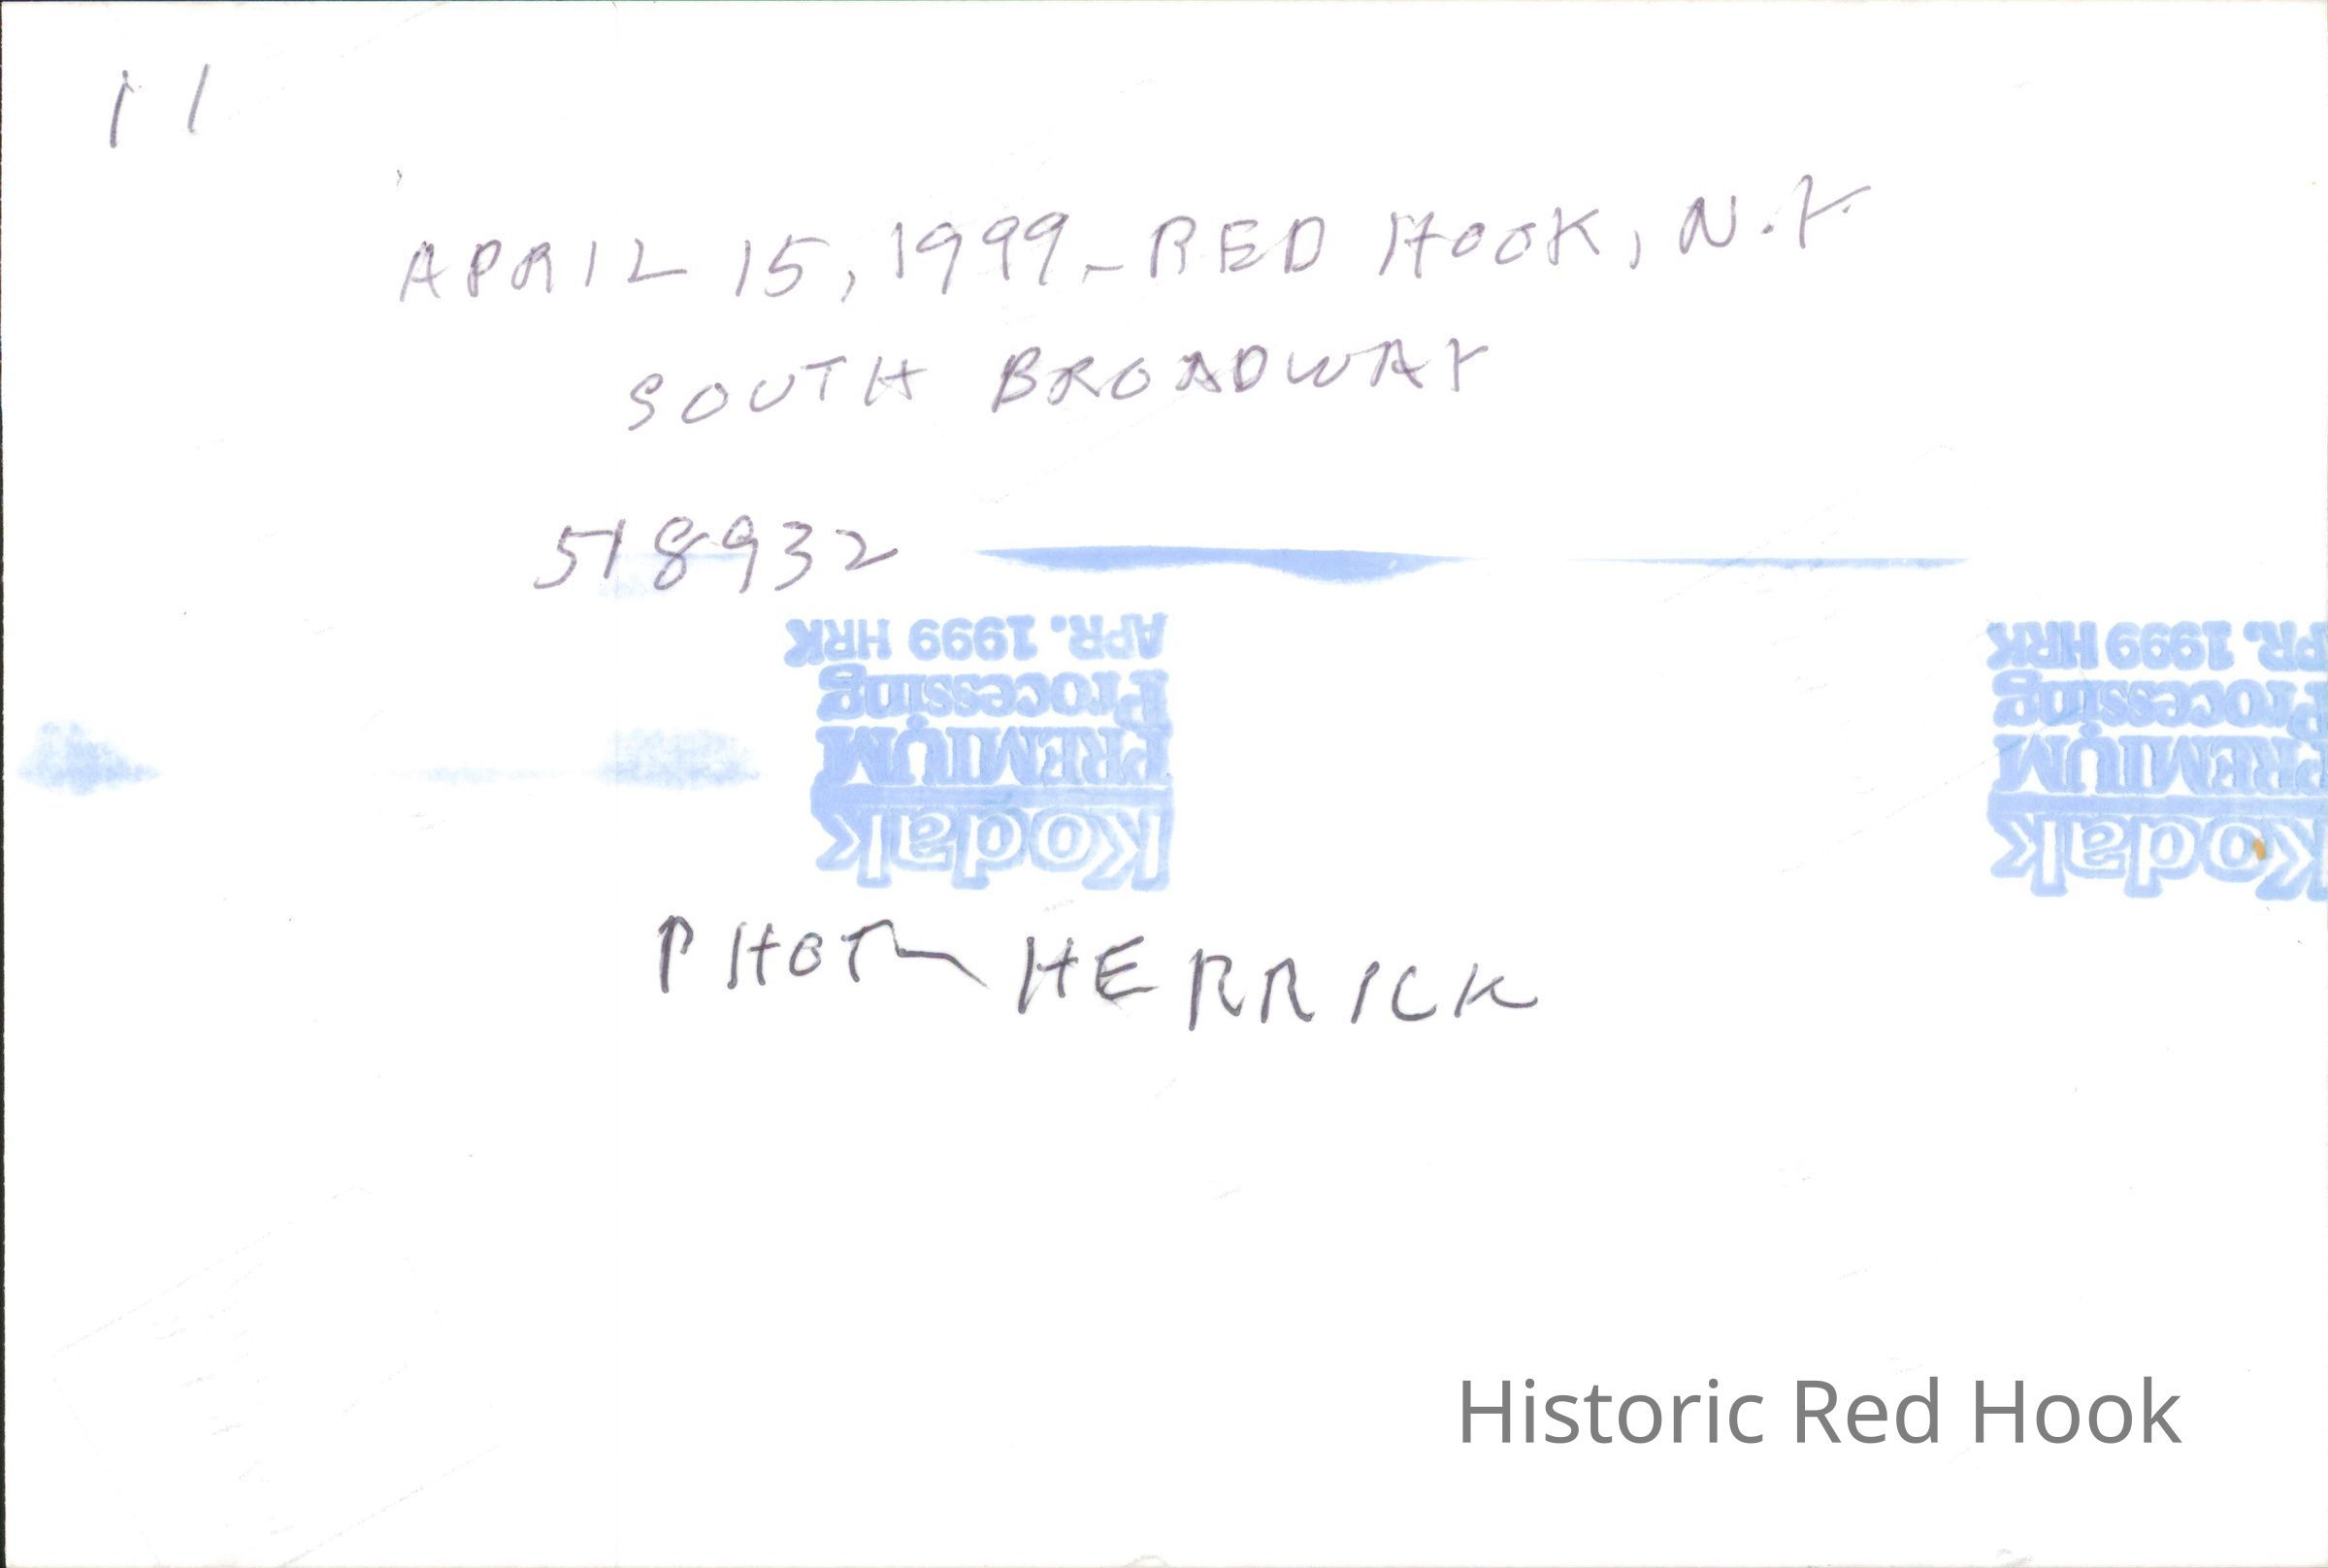 11
APRIL 15, 1999 - RED HOOK, N.Y.
SOUTH BROADWAY
518932
APR. 1999 HRK
Processing
PREMIUM
Kodak
PR. 1999 HRK
Processing
PREMIUM
Kodak
PHOTO HERRICK
Historic Red Hook